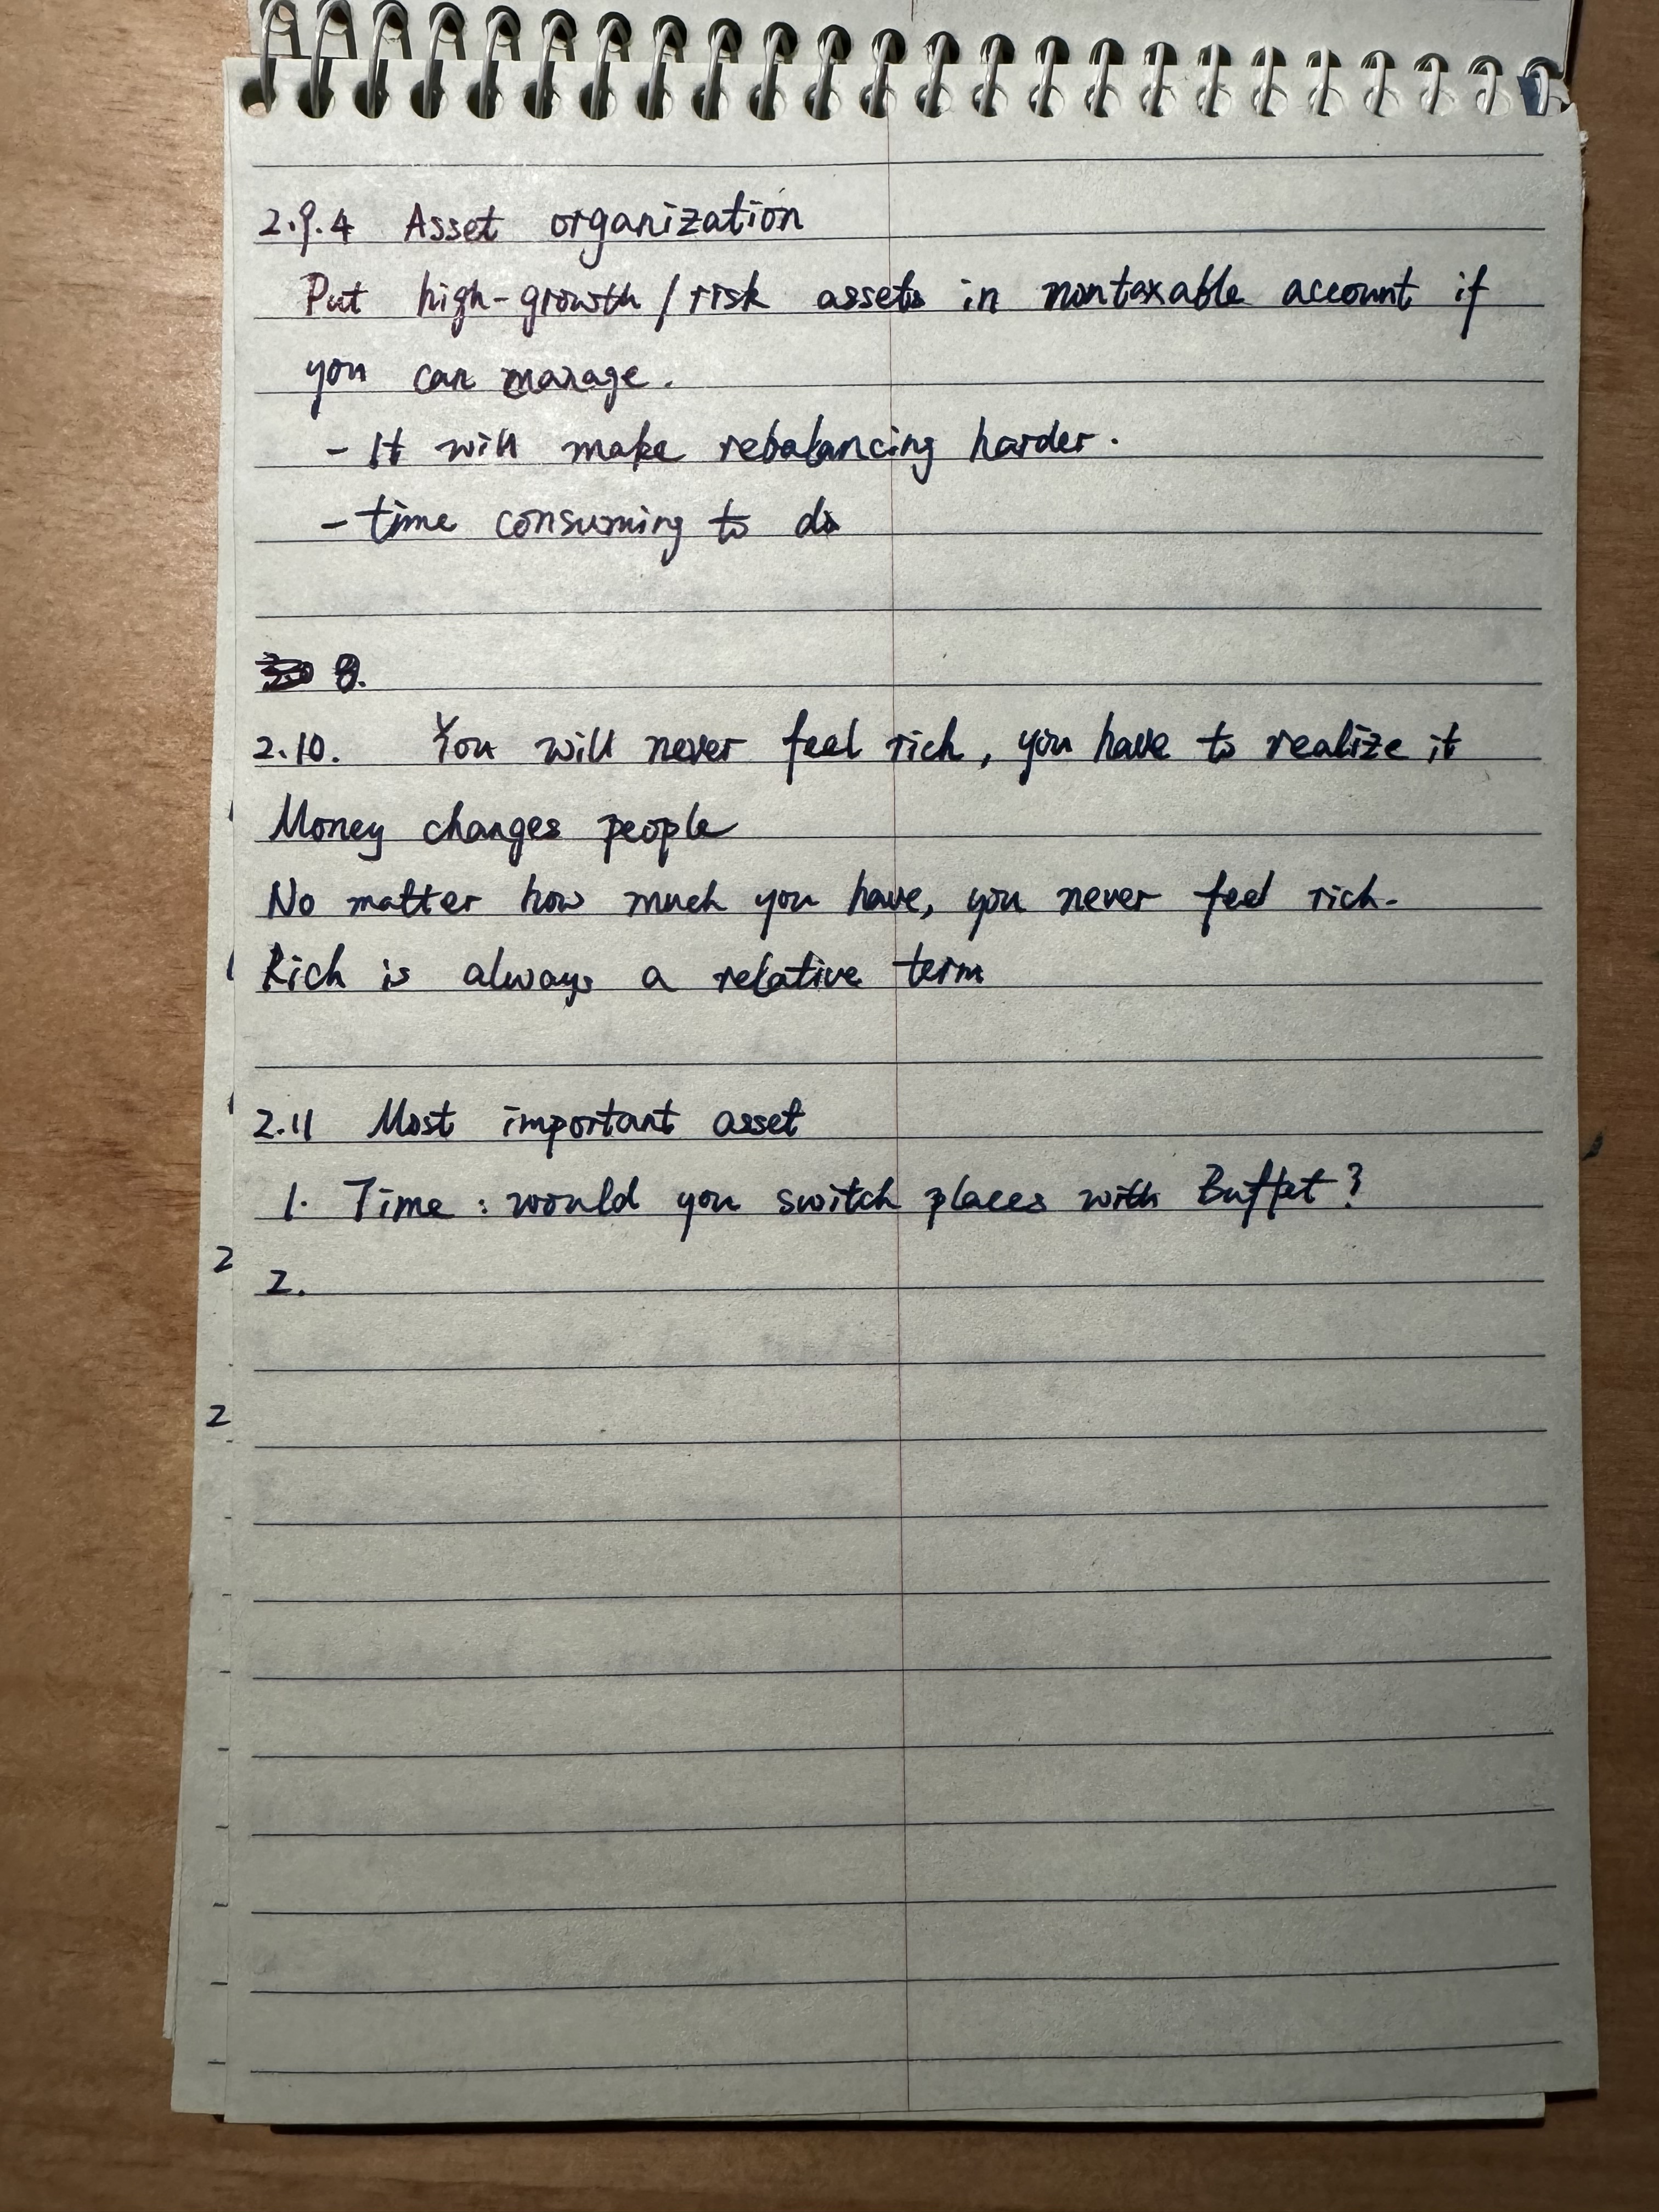 2.9.4 Asset organization
Put high-growth/risk assets in nontaxable account if
you can manage.
- It will make rebalancing harder.
- time consuming to do
8.
2.10. You will never feel rich, you have to realize it
Money changes people
No matter how much you have, you never feel rich.
Rich is always a relative term
2.11 Most important asset
1. Time: would you switch places with Buffet?
2
2.
2